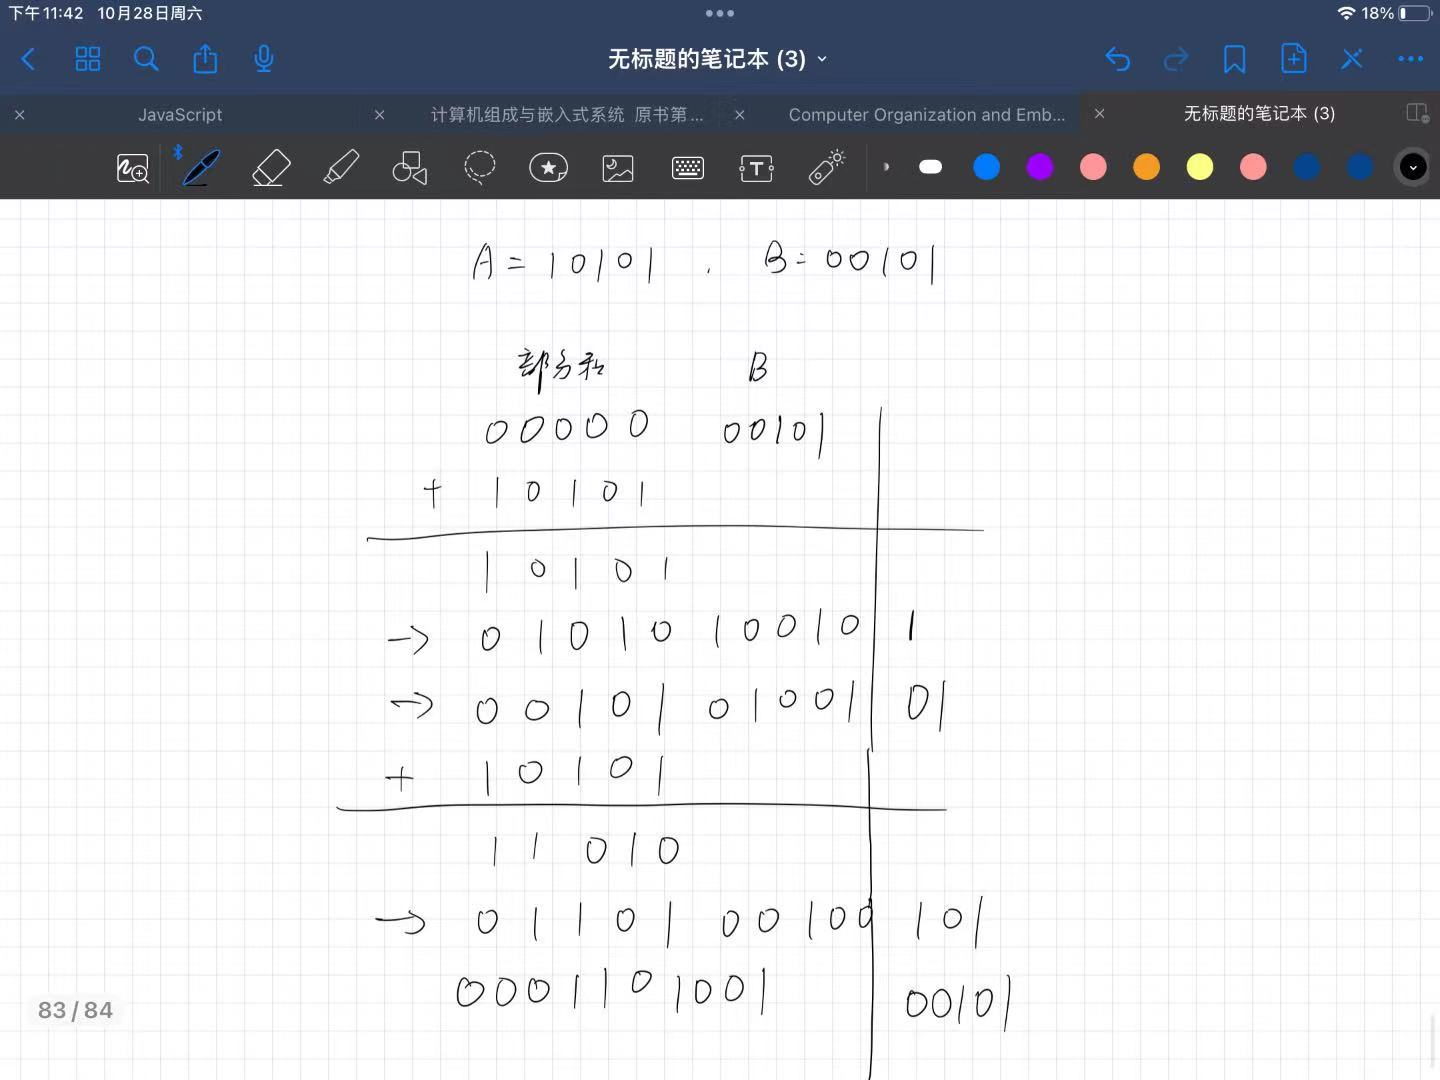 下午11:42 10月28日周六
18%
无标题的笔记本 (3)
JavaScript
计算机组成与嵌入式系统 原书第...
Computer Organization and Emb...
无标题的笔记本 (3)
A = 10101 . B = 00101
部分和 B
00000 00101
+ 10101
10101
→ 01010 10010 1
→ 00101 01001 01
+ 10101
11010
→ 01101 00100 101
0001101001 00101
83 / 84